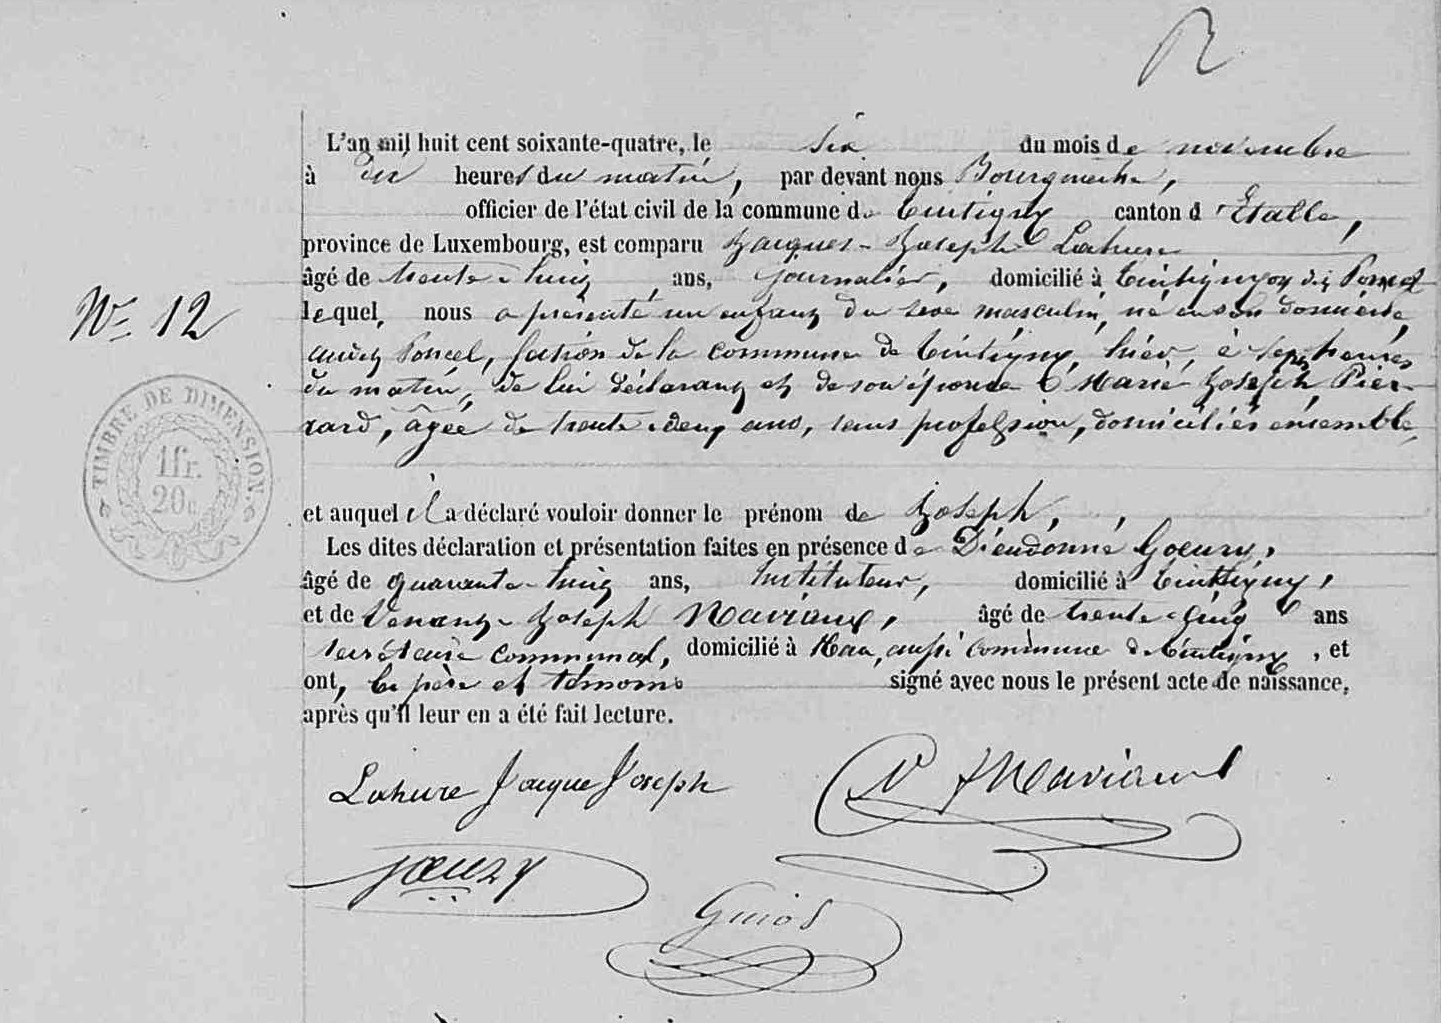 L'an mil huit cent soixante-quatre, le six du mois de novembre
à dix heures du matin, par devant nous Bourgmestre,
officier de l'état civil de la commune de Tintigny canton d'Etalle,
province de Luxembourg, est comparu Jacques-Joseph Lahure
âgé de trente-huit ans, journalier, domicilié à Tintigny
lequel, nous a présenté un enfant du sexe masculin, né en son domicile,
audit Poncel, section de la commune de Tintigny, hier, à sept heures
du matin, de lui déclarant et de son épouse Marie Joseph Pier-
rard, âgée de trente-deux ans, sans profession, domiciliés ensemble,
N° 12
TIMBRE DE DIMENSION.
1fr.
20c.
et auquel il a déclaré vouloir donner le prénom de Joseph,
Les dites déclaration et présentation faites en présence de Dieudonné Goeury,
âgé de quarante-huit ans, Instituteur, domicilié à Tintigny,
et de Venant-Joseph Maviaux, âgé de trente-cinq ans
secrétaire communal, domicilié à Han, aussi commune de Tintigny, et
ont, le père et témoins signé avec nous le présent acte de naissance,
après qu'il leur en a été fait lecture.
Lahure Jacque Joseph V J Maviaux
Goeury